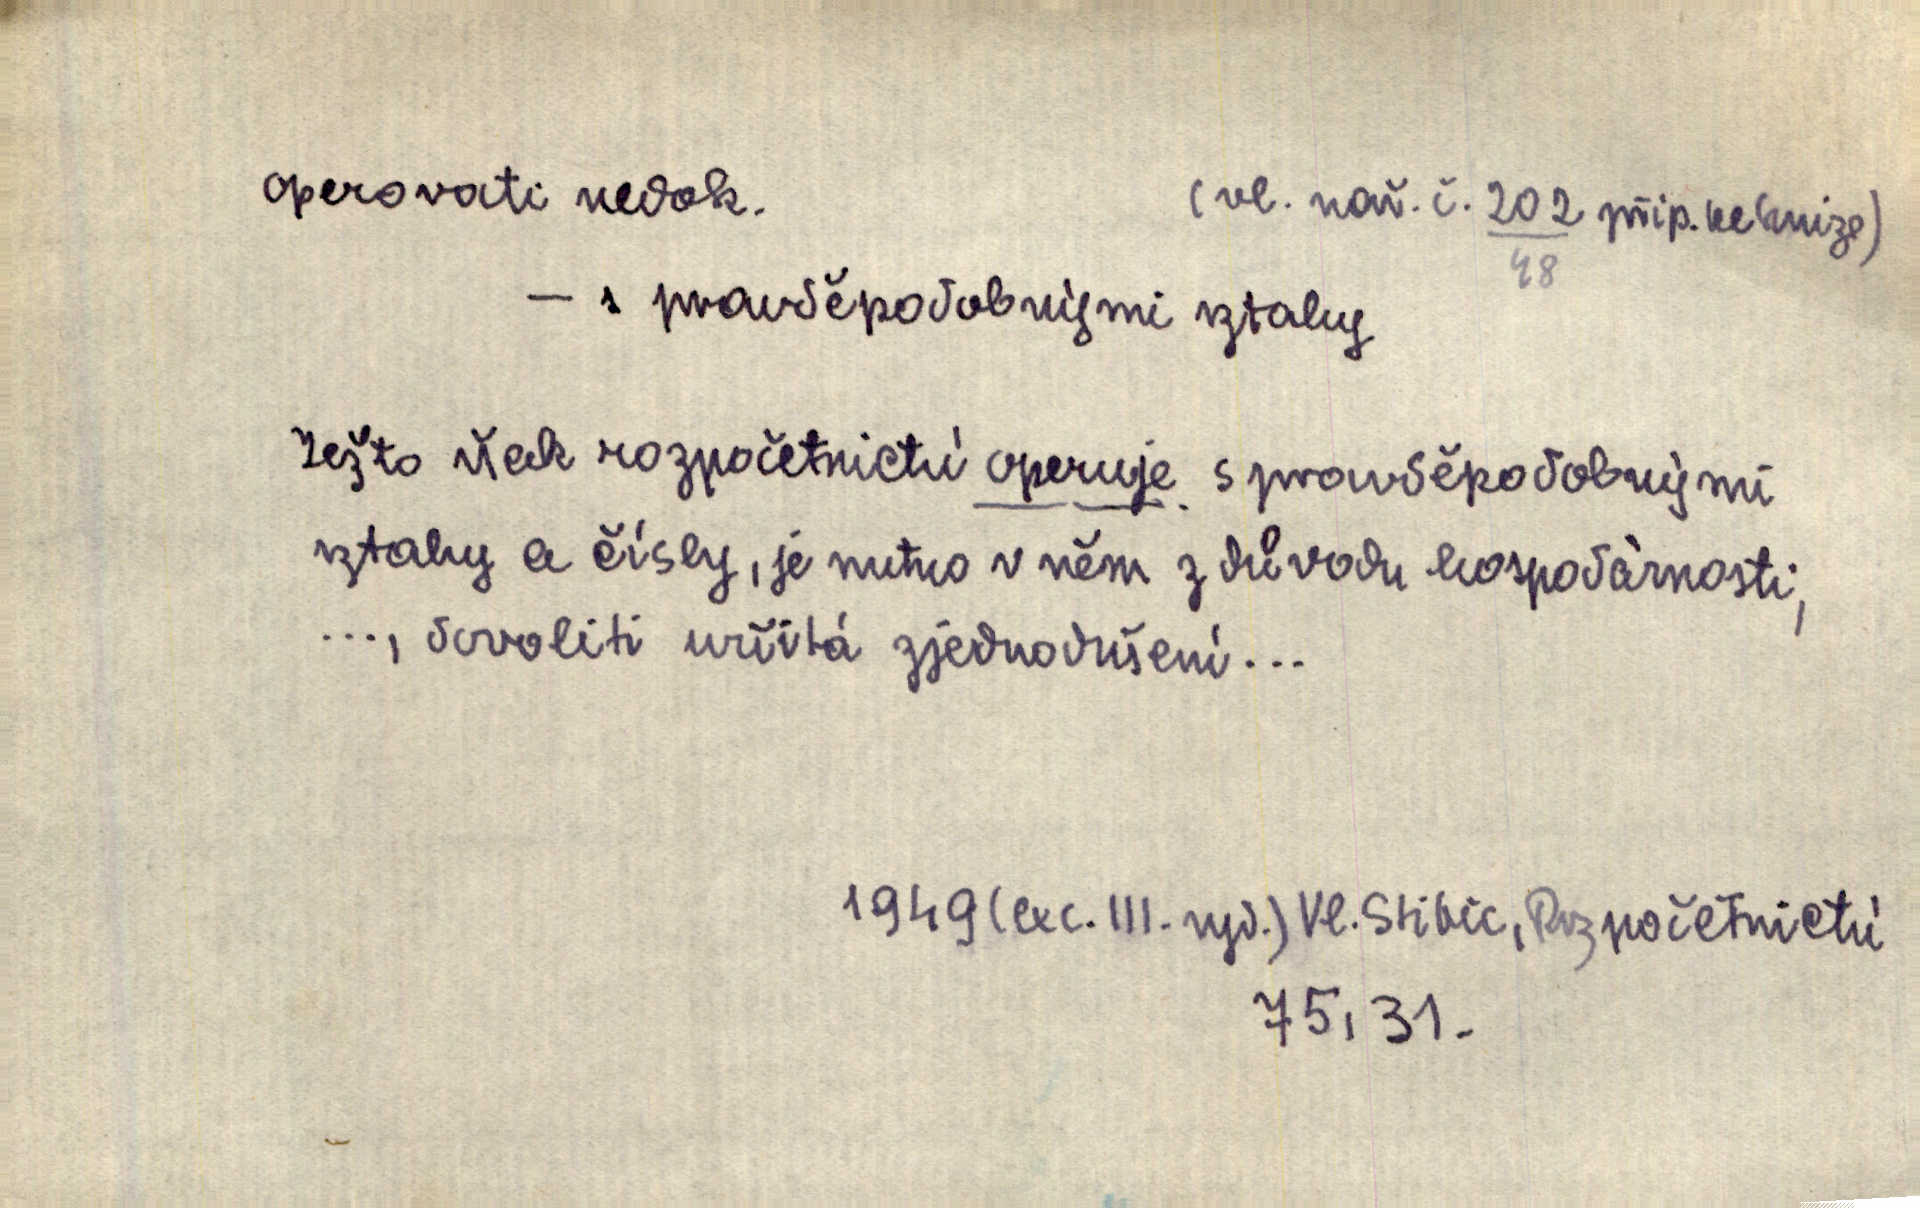 operovati nedok. (vl. nař. č. 202 přip. ke knize)
48
— s pravděpodobnými vztahy
Ježto však rozpočetnictví operuje s pravděpodobnými
vztahy a čísly, je nutno v něm z důvodu hospodárnosti,
..., dovoliti určitá zjednodušení ...
1949 (exc. III. vyd.) Vl. Stibic, Rozpočetnictví
75, 31.